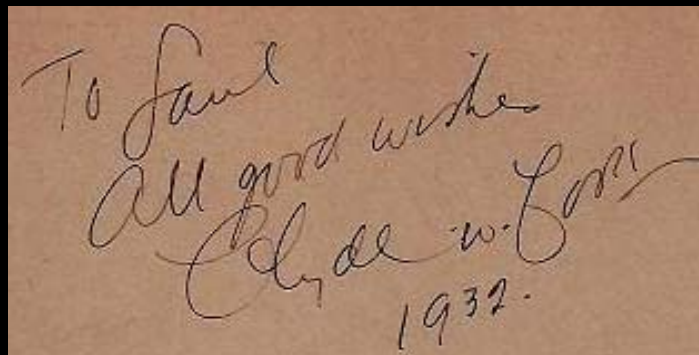 To Saul
All good wishes
Clyde W.
1932.